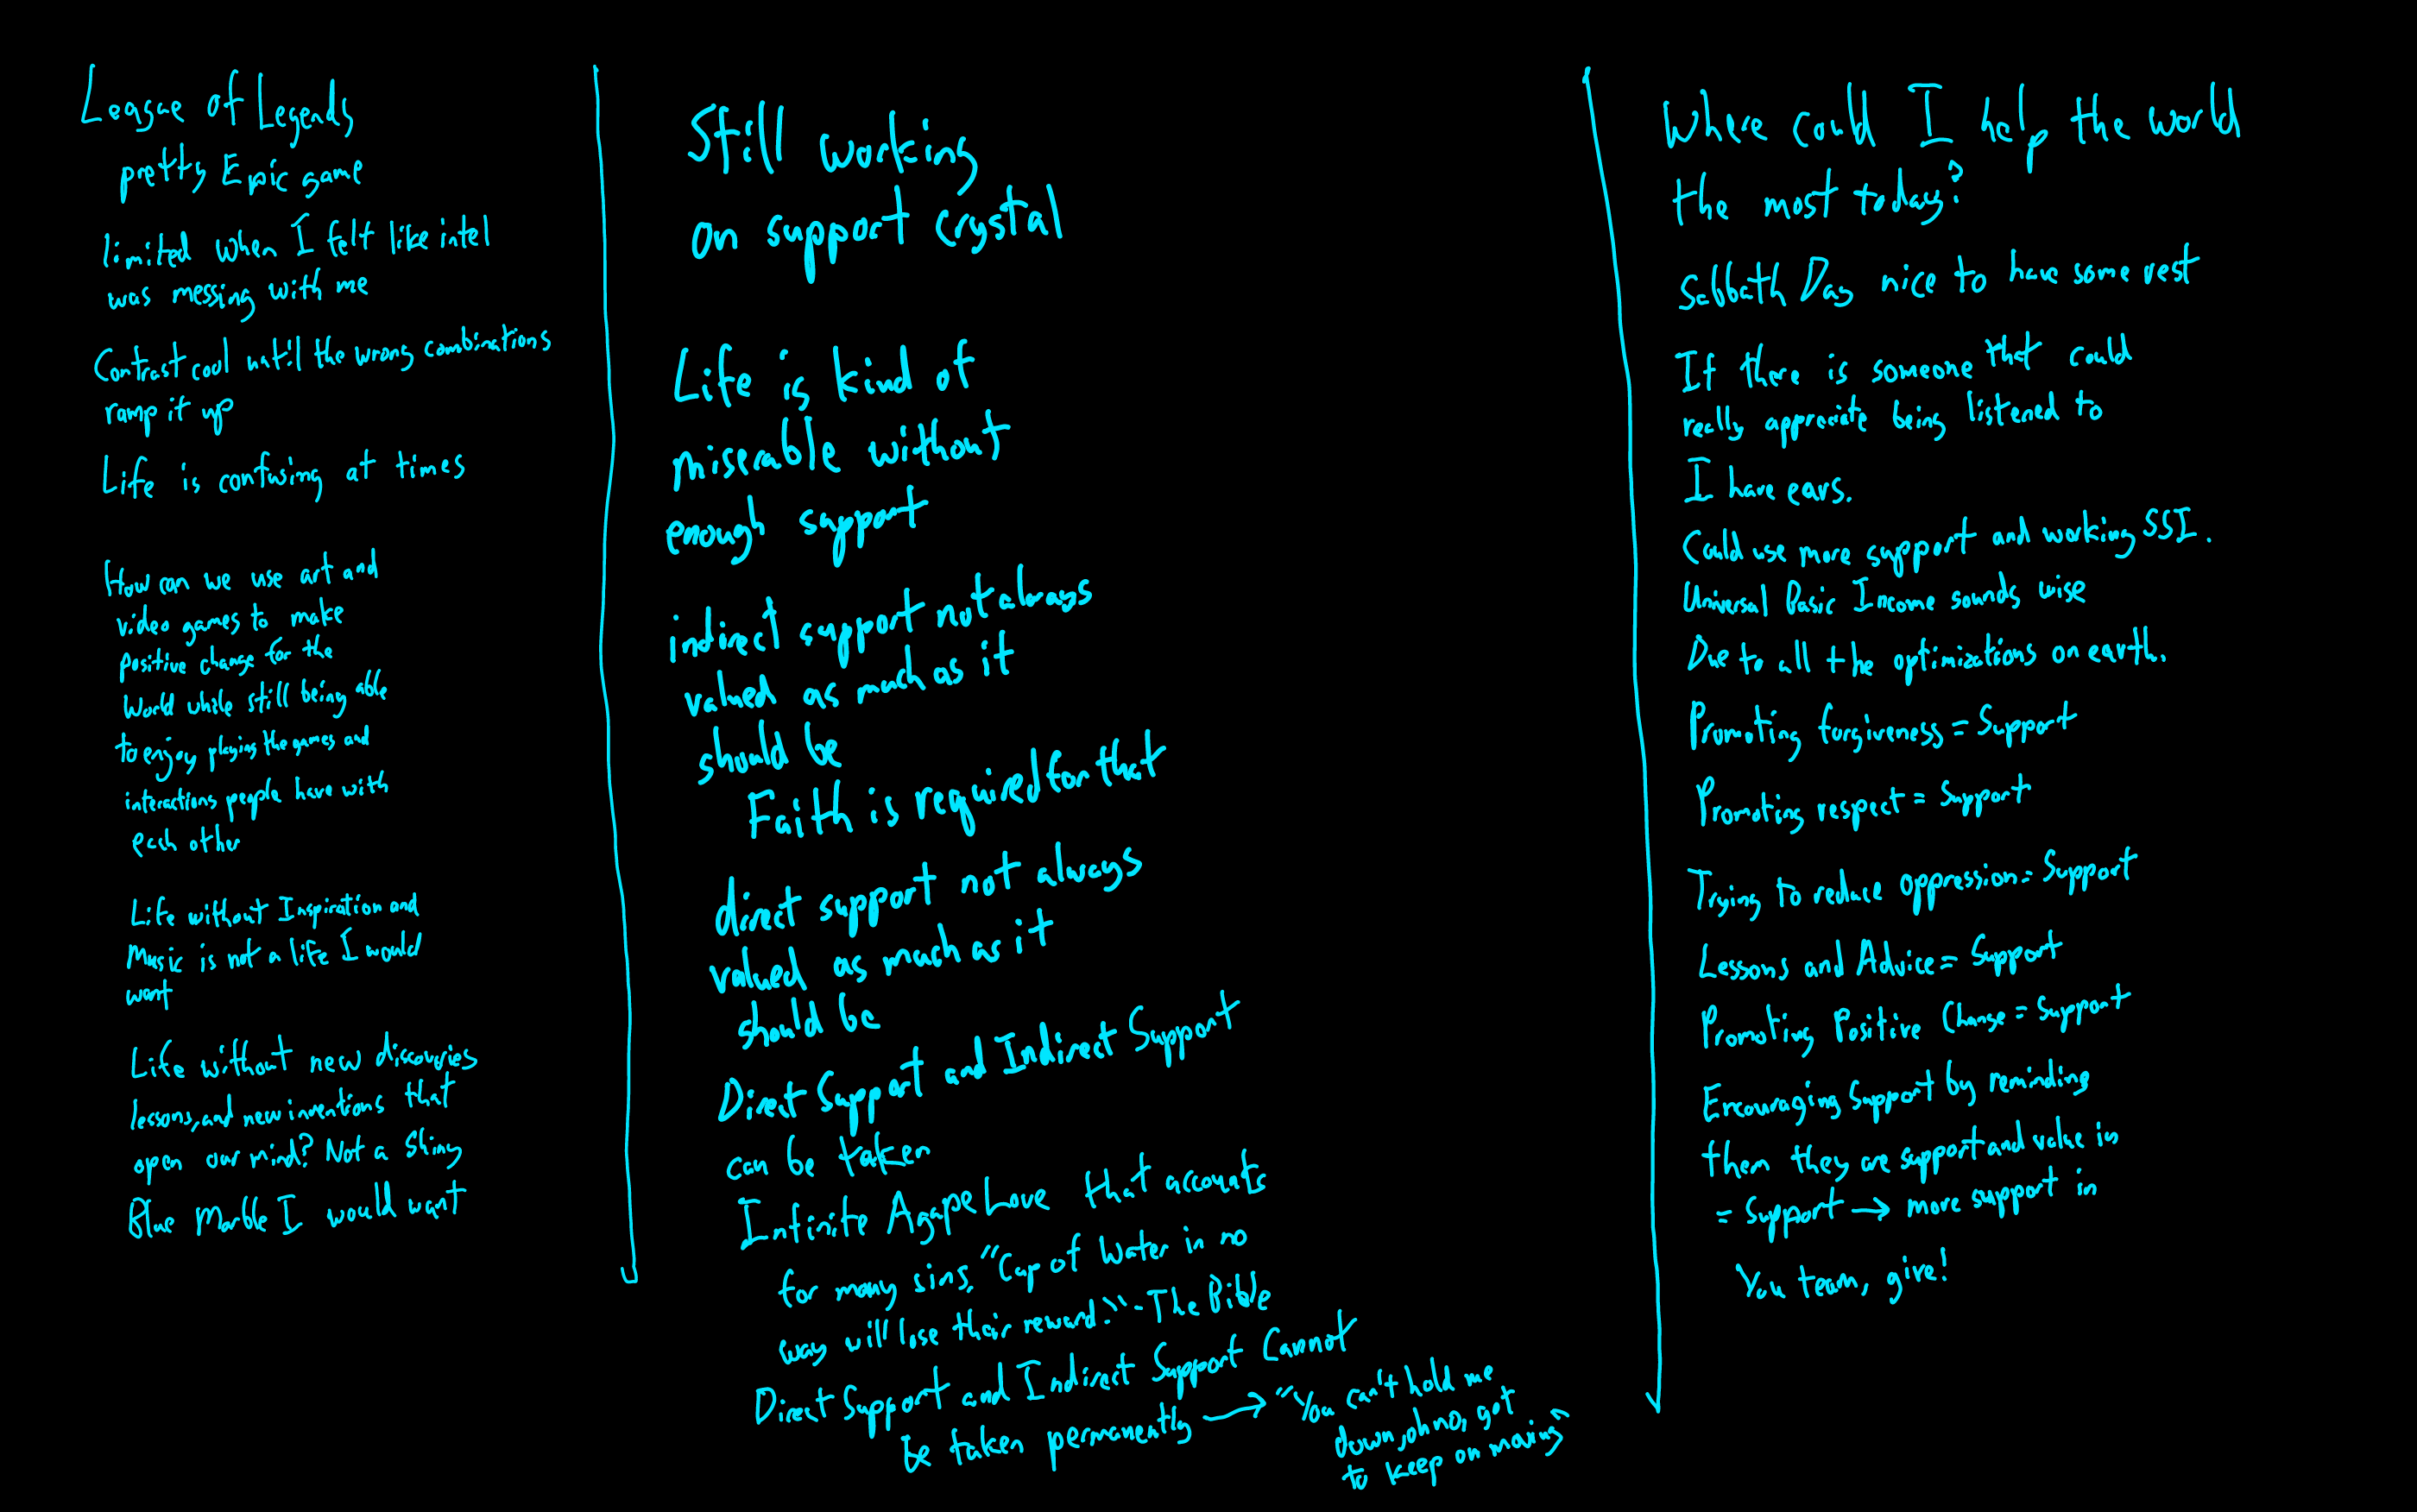 League of Legends
pretty Epic game
limited when I felt like intel
was messing with me
Contrast cool until the wrong combinations
ramp it up
Life is confusing at times
How can we use art and
video games to make
positive change for the
World while still being able
to enjoy playing the games and
interactions people have with
each other
Life without Inspiration and
Music is not a life I would
want
Life without new discoveries
lessons, and new inventions that
open our mind? Not a Shiny
Blue Marble I would want
Still working
on support crystal
Life is kind of
miserable without
enough support
indirect support not always
valued as much as it
should be
Faith is required for that
direct support not always
valued as much as it
should be
Direct Support and Indirect Support
can be taken
Infinite Agape Love that accounts
for many sins. "Cup of Water in no
way will lose their reward." - The Bible
Direct Support and Indirect Support Cannot
be taken permanently → "You can't hold me
down, oh no, got
to keep on moving"
Where could I help the world
the most today?
Sabbath Day nice to have some rest
If there is someone that could
really appreciate being listened to
I have ears.
Could use more support and working SSI.
Universal Basic Income sounds wise
Due to all the optimizations on earth.
Promoting forgiveness = Support
Promoting respect = Support
Trying to reduce oppression = Support
Lessons and Advice = Support
Promoting Positive Change = Support
Encouraging Support by reminding
them they are support and value in
= Support → more support in
You team, give!